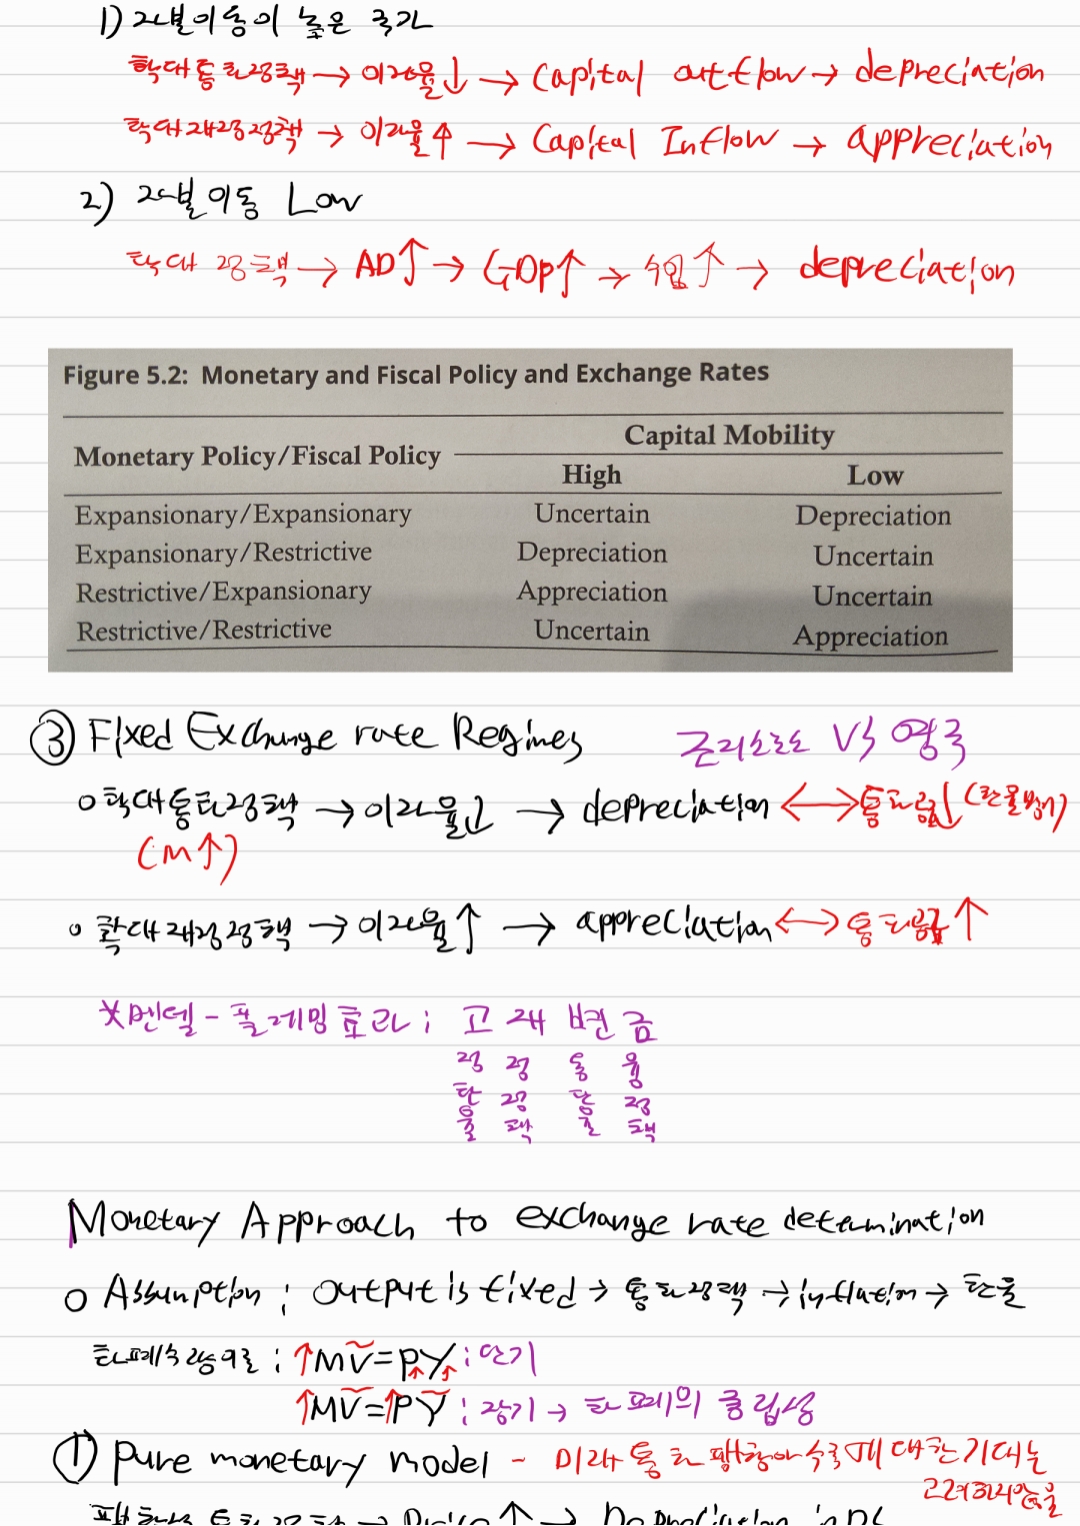 1) 자본이동이 높은 국가
확대통화정책 → 이자율↓ → Capital outflow → depreciation
확대재정정책 → 이자율↑ → Capital Inflow → appreciation
2) 자본이동 Low
확대 정책 → AD↑ → GDP↑ → 수입↑ → depreciation
Figure 5.2: Monetary and Fiscal Policy and Exchange Rates
Capital Mobility
Monetary Policy/Fiscal Policy
High Low
Expansionary/Expansionary Uncertain Depreciation
Expansionary/Restrictive Depreciation Uncertain
Restrictive/Expansionary Appreciation Uncertain
Restrictive/Restrictive Uncertain Appreciation
③ Fixed Exchange rate Regimes 조지소로스 VS 영국
o 확대통화정책 → 이자율↓ → depreciation ↔ 통화량↓ (환율방어)
(M↑)
o 확대재정정책 → 이자율↑ → appreciation ↔ 통화공급↑
*먼델-플레밍효과; 고 재 변 금
정 정 동 융
환 정 환 정
율 책 율 책
Monetary Approach to exchange rate determination
o Assumption ; output is fixed → 통화정책 → inflation → 환율
화폐수량이론 ; ↑MV=P↑Y↑ ; 단기
↑MV=↑PY ; 장기 → 화폐의 중립성
① Pure monetary model - 미래 통화 팽창이나 수축에 대한 기대는
고려하지않음
팽창적 통화정책 → Price↑ → Depreciation in DC